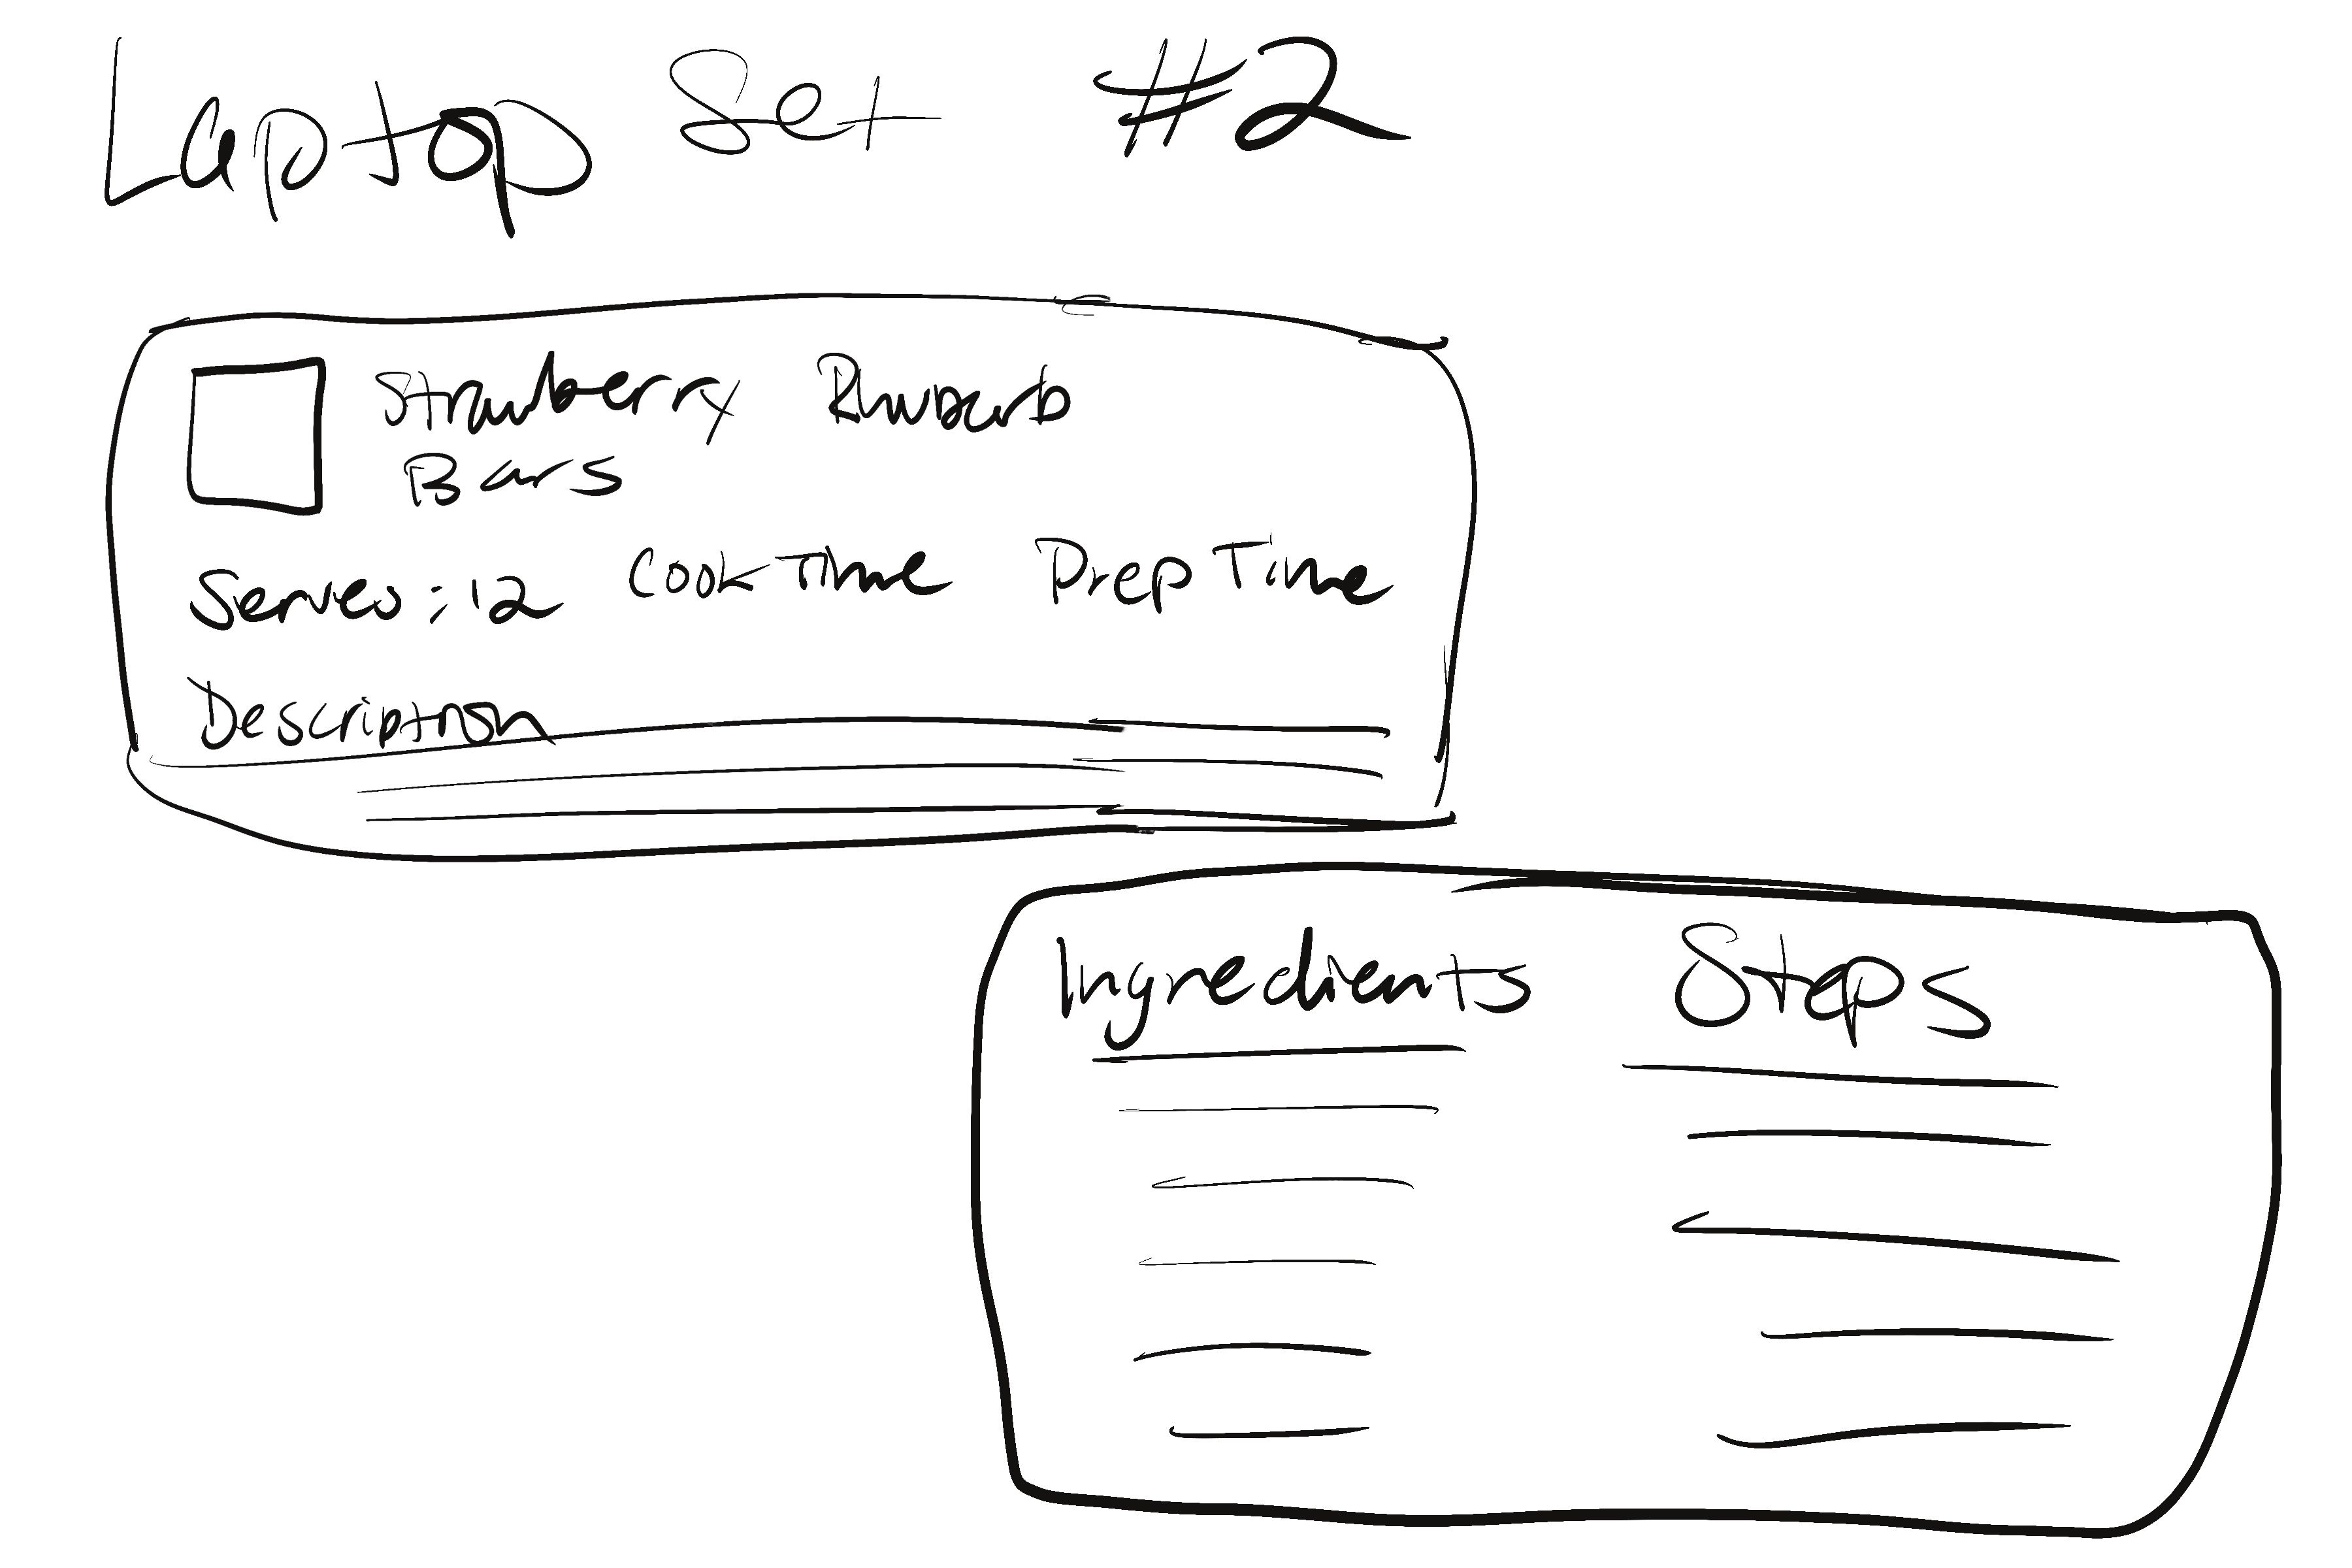 Laptop Set #2
Strawberry Rhubarb
Bars
Serves: 12 Cook Time Prep Time
Description
Ingredients Steps